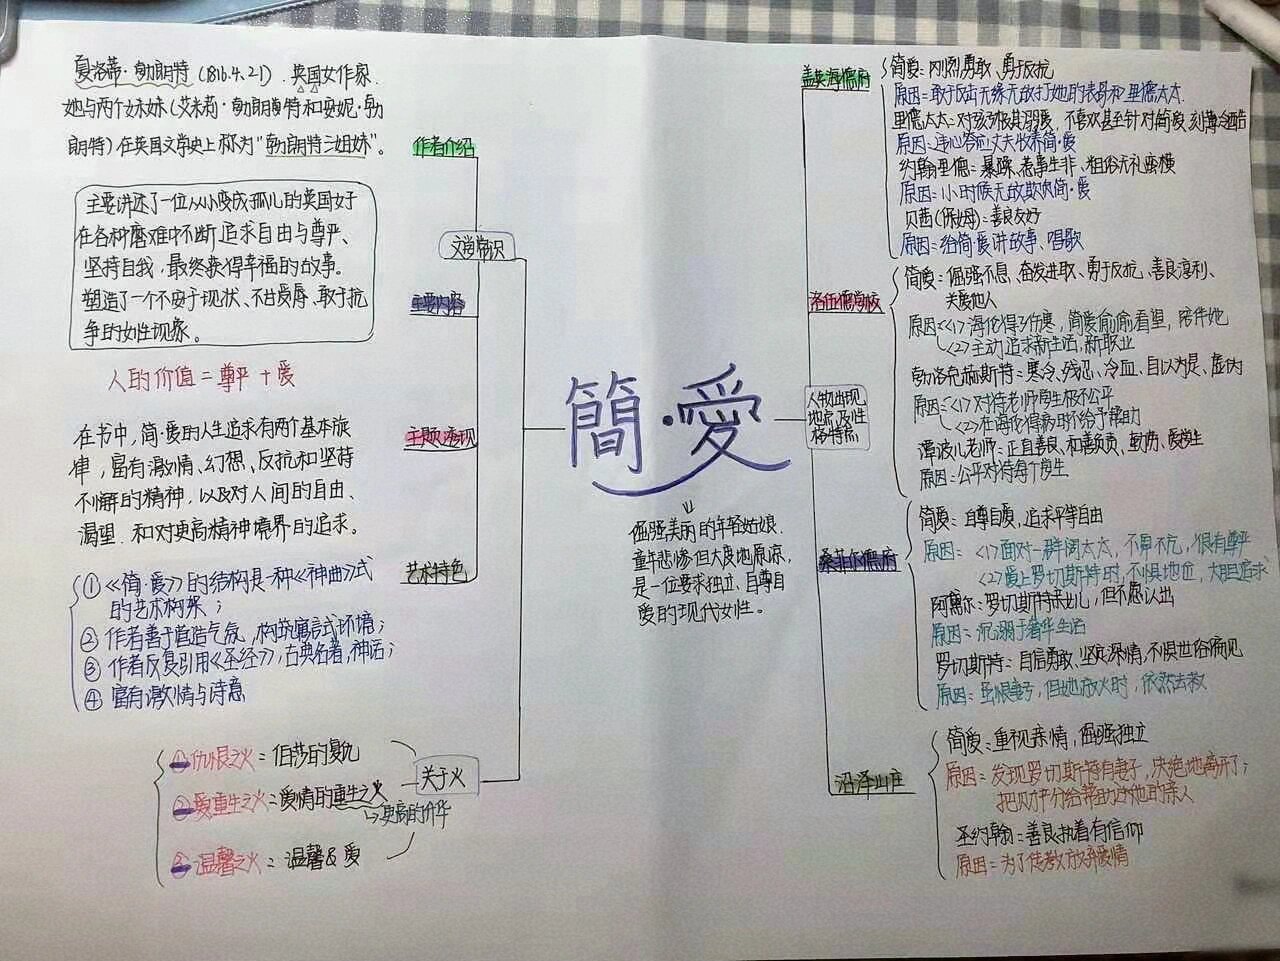 夏洛蒂·勃朗特(1816.4.21).英国女作家.
她与两个妹妹(艾米莉·勃朗特和安妮·勃
朗特)在英国文学史上称为"勃朗特三姐妹"。
作者介绍
文学常识
主要讲述了一位从小变成孤儿的英国女子
在各种磨难中不断追求自由与尊严、
坚持自我,最终获得幸福的故事。
塑造了一个不安于现状、不甘受辱、敢于抗
争的女性现象。
主要内容
人的价值=尊严+爱
在书中,简·爱的人生追求有两个基本旋
律,富有激情、幻想、反抗和坚持
不懈的精神,以及对人间的自由、
渴望.和对更高精神境界的追求。
主题透现
艺术特色
①《简·爱》的结构是一种《神曲》式
的艺术构架;
②作者善于营造气氛,构筑寓言式环境;
③作者反复引用《圣经》,古典名著,神话;
④富有激情与诗意
①仇恨之火=伯莎的复仇
②爱重生之火=爱情的重生之火
↳更高的升华
③温馨之火=温馨&爱
关于火
簡·愛
⇓
倔强美丽的年轻姑娘.
童年悲惨但大度地原谅,
是一位要求独立、自尊自
爱的现代女性。
人物出现
地点及性
格特点
盖茨海德府
简爱:刚烈勇敢、勇于反抗
原因=敢于反击无缘无故打她的表哥和里德太太.
里德太太=对孩子极其溺爱,不喜欢甚至针对简爱,刻薄冷酷
原因=违心答应丈夫收养简·爱
约翰里德=暴躁、惹事生非、粗俗无礼蛮横
原因=小时候无故欺负简·爱
贝茜(保姆)=善良友好
原因=给简·爱讲故事、唱歌
洛伍德学校
简爱:倔强不息、奋发进取、勇于反抗、善良淳朴、
关爱他人
原因=<1>海伦得了伤寒,简爱偷偷看望,陪伴她
<2>主动追求新生活,新职业
勃洛克赫斯特=寒冷、残忍、冷血、自以为是、虚伪
原因=<1>对待老师学生极不公平
<2>在海伦得病时不给予帮助
谭波儿老师=正直善良、和善负责、勤劳、爱学生
原因=公平对待每个学生
桑菲尔德府
简爱:自尊自爱,追求平等自由
原因:<1>面对一群阔太太,不卑不亢,很有尊严
<2>爱上罗切斯特时,不惧地位,大胆追求
阿黛尔:罗切斯特亲女儿,但不愿认出
原因:沉溺于奢华生活
罗切斯特:自信勇敢、坚定深情,不惧世俗偏见
原因:虽恨妻子,但她放火时,依然去救
沼泽山庄
简爱:重视亲情,倔强独立
原因=发现罗切斯特有妻子,决绝地离开了;
把财产分给帮助过她的亲人
圣约翰=善良执着有信仰
原因=为了传教放弃爱情